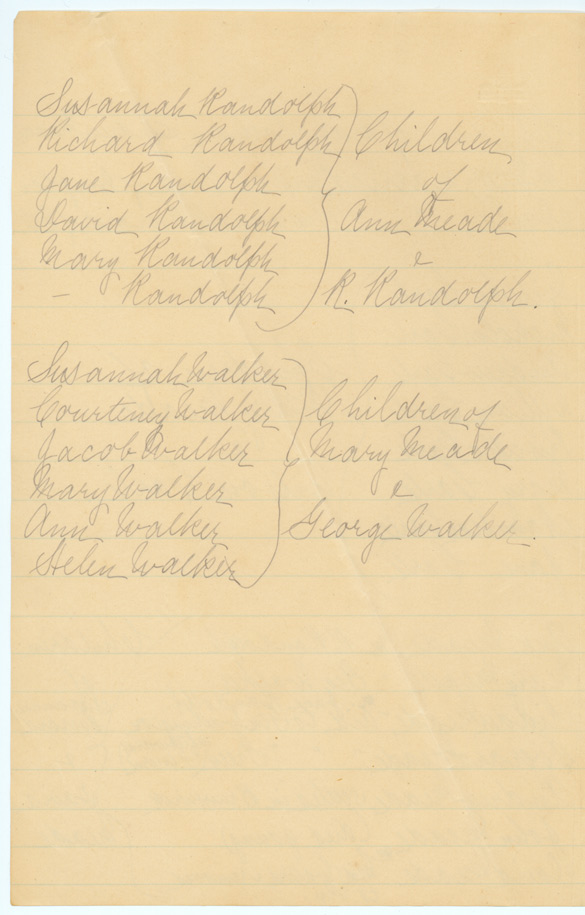 Susannah Randolph
Richard Randolph
Jane Randolph
David Randolph
Mary Randolph
— Randolph
Children
of
Ann Meade
&
R. Randolph.
Susannah Walker
Courteney Walker
Jacob Walker
Mary Walker
Ann Walker
Helen Walker
Children of
Mary Meade
&
George Walker.